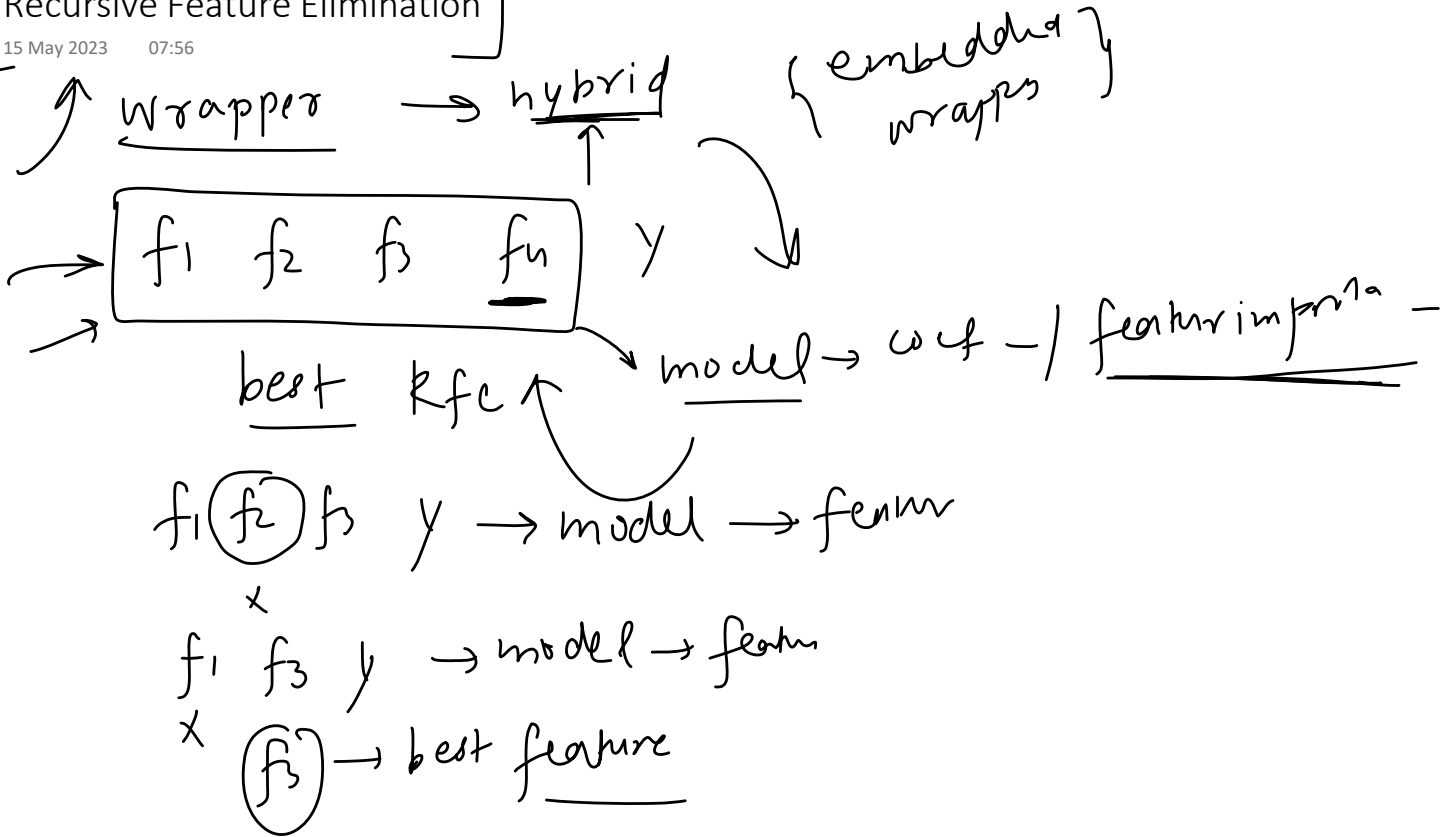 Recursive Feature Elimination
15 May 2023 07:56
wrapper → hybrid { embedded
wrapps }
f1 f2 f3 f4 y
model → coef - / featurimprta -
best Rfc
f1 f2 f3 y → model → featur
x
f1 f3 y → model → featu
x
f3 → best feature